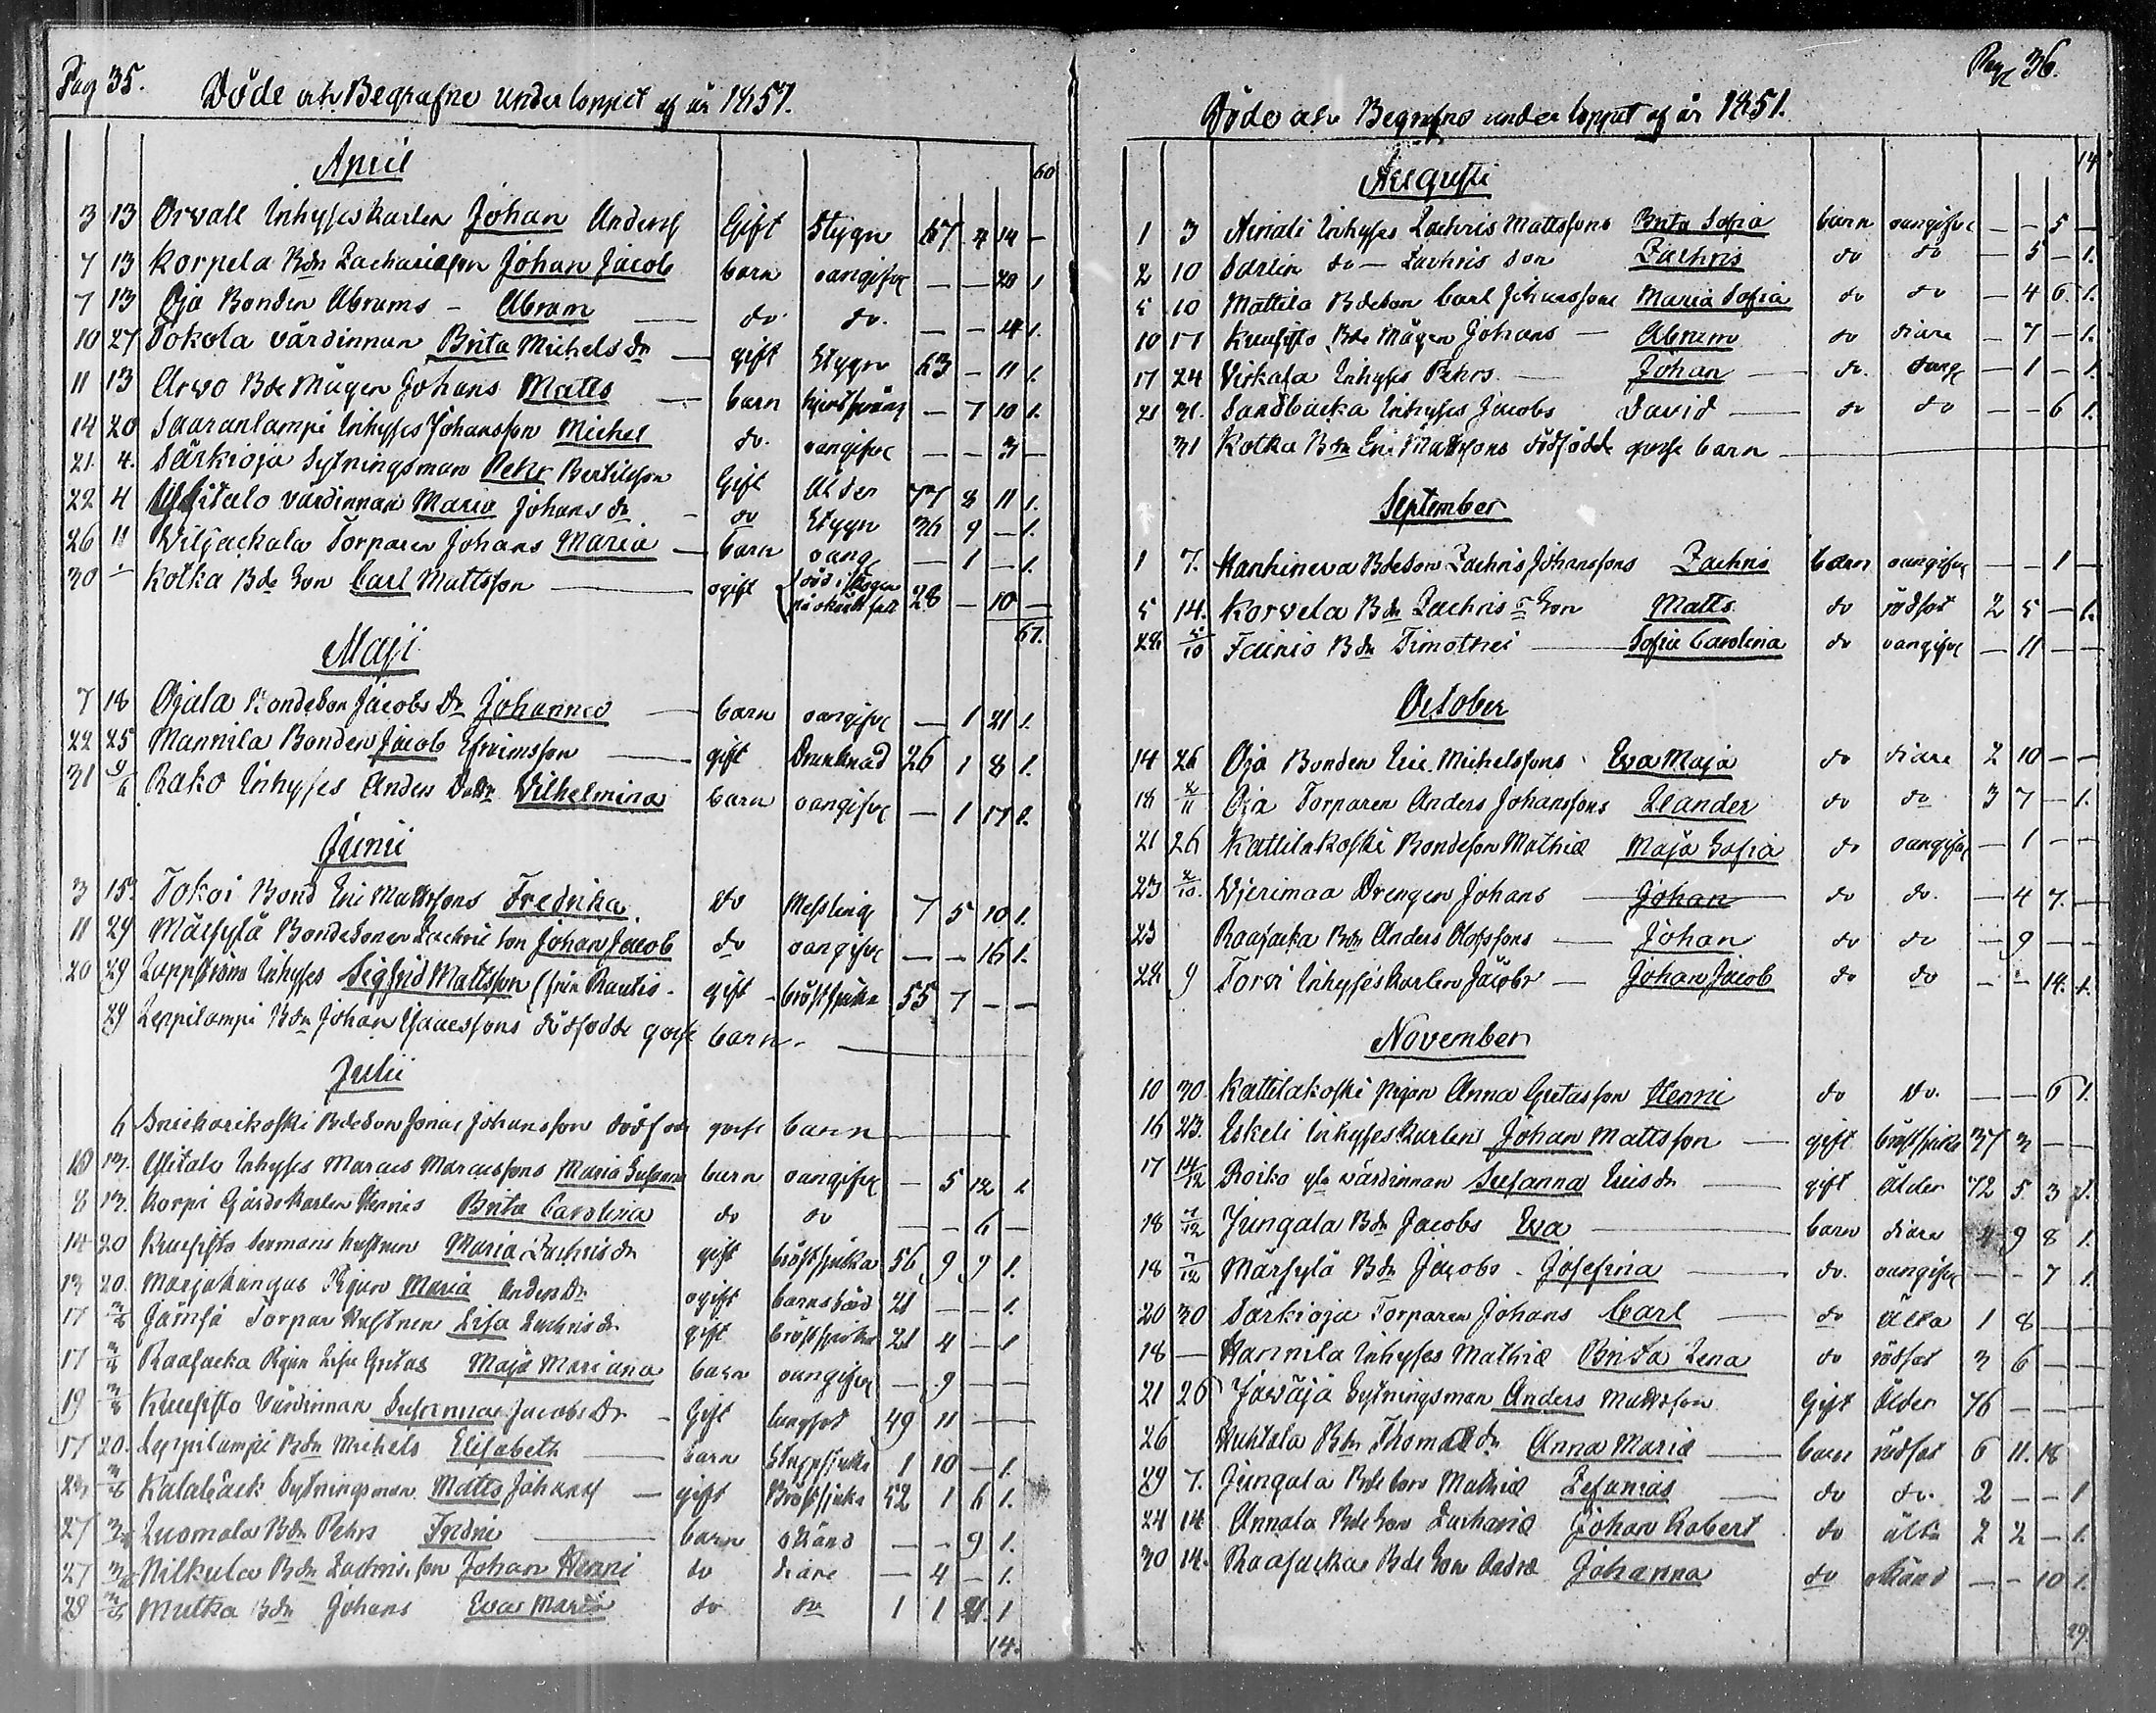 Pag 35.
Döde och Begrafne under loppet af år 1851.
60
April
3 13 Orvall Inhyses karlen Johan Anderss Gift Stygn 67 4 14 —
7 13 Korpela Bdn Zachariæson Johan Jacob barn oangifvet — — 20 1
7 13 Oja Bonden Abrams — Abram — do. do. — — 4 1.
10 27 Tokola värdinnan Brita Michels dr — gift Stygn 63 — 11 1.
11 13 Arvo Bde Mågen Johans Matts — barn — 7 10 1.
14 20 Saaranlampi Inhyses Johansson Michel do. oangifvet — — 3 —
21. 4. Särkioja Sytningsman Pehr Bertilsson Gift Ålder 77 8 11 1.
22 4 Ylitalo värdinnan Maria Johans dr — do Stygn 36 9 — 1.
26 11 Viljackala Torparen Johans Maria — barn oang — 1 — 1.
30 — Kotka Bde Son Carl Mattsson — ogift död i skogen 28 — 10 —
61.
Maji
7 18 Ojala Bondeson Jacobs Dr Johanna — barn oangifvet — 1 21 1.
22 25 Mannila Bonden Jacob Efraimsson — gift Drunknad 26 1 8 1.
31 9/6 Rako Inhyses Anders Dottr Vilhelmina barn oangifvet — 1 17 1.
Junii
3 15. Tokoi Bond Eric Mattssons Fredrika do Messling 7 5 10 1.
11 29 Märsylä Bondesonen Zachris son Johan Jacob do oangifvet — — 16 1.
20 29 Lappström Inhyses Sigfrid Mattsson (från Rautio. gift bröstsjuka 55 7 — —
29 Leppilampi Bdn Johan Isaacssons dödfödde gosse barn. —
Julii
6 Snickarikoski Bdeson Jonas Johansson dödfödd gosse barn —
10 13. Ylitalo Inhyses Marcus Marcussons Maria Susanna barn oangifvet — 5 12 1.
8 13. Korpi Gårdskarlen Hennis Brita Carolina do do — — 6 —
14 20 Kuusisto hustrun Maria Zachris dr gift bröstsjuka 56 9 9 1.
13 20. Marjakangas Pigan Maria Anders Dr ogift barnsbörd 21 — — 1.
17 Jämsä Torpar Hustrun Lisa Zachris dr gift bröstsjuka 21 4 — 1
17 Raasacka Pigan Lisa Gretas Maja Mariana barn oangifvet — 9 — —
19 Kuusisto Värdinnan Susanna Jacobs Dr — Gift lungsot 49 11 — —
17 20. Leppilampi Bdn Michels Elisabeth — barn 1 10 — 1.
23 Kalabäck Sytningsman Matts Johanss — gift Bröstsjuka 52 1 6 1.
27 Luomala Bdn Pehrs — barn okänd — — 9 1.
27 Nilkula Bdn Zachris son Johan Henric do diare — 4 — 1.
29 Mutka Bdn Johans Eva Maria do do 1 1 21. 1
14.
Pag 36.
Döde och Begrafne under loppet af år 1851.
14
Augusti
1 3 Ainali Inhyses Zachris Mattssons Brita Sofia barn oangifvet — — 5 —
2 10 Sarlin do — Zachris Son Zachris do do — 5 — 1.
5 10 Mattila Bdeson Carl Johanssons Maria Sofia do do — 4 6 1.
10 17 Kuusisto Bde Mågen Johans — Abram do diare — 7 — 1.
17 24 Virkala Inhyses Pehrs — Johan — do. oang — 1 — 1.
21 31. Sandbacka Inhyses Jacobs David — do do — — 6 1.
31 Kotka Bdn Eric Mattssons dödfödde gosse barn —
September
1 7. Hanhineva Bdeson Zachris Johanssons Zachris barn oangifvet — — 1 —
5 14. Korvela Bdn Zachris Son Matts do rödsot 2 5 — 1.
28 5/10 Fainio Bdn Timothei — Sofia Carolina do oangifvet — 11 — —
October
14 26 Oja Bonden Eric Michelssons Eva Maja do diare 2 10 — —
18 2/11 Oja Torparen Anders Johanssons Leander do do 3 7 — 1.
21 26 Kattilakoski Bondeson Mathiæ Maja Sofia do oangifvet — 1 — —
23 2/10. Vierimaa Drengen Johans — Johan do do. — 4 7. —
23 Raasacka Bdn Anders Olofssons — Johan do do — 9 — —
28 9 Torvi Inhyses karlen Jacobs — Johan Jacob do do — — 14. 1.
November
10 30. Kattilakoski pigan Anna Gretas son Henric do do. — — 6 1.
16 23. Eskeli Inhyses karlen Johan Mattsson — gift bröstsjuka 37 3 — —
17 14/12 Roiko värdinnan Susanna Erics dr — gift Ålder 72 5 3 1.
18 7/12 Jungala Bdn Jacobs Eva — barn diare 4 9 8 1.
18 7/12 Märsylä Bdn Jacobs — Josefina — do. oangifvet — — 7 1.
20 30 Särkioja Torparen Johans Carl — do Älta 1 8 — —
18 — Hannila Inhyses Mathiæ Brita Lena do rödsot 3 6 — —
21 26 Sytningsman Anders Mattsson Gift Ålder 76 — — —
26 Huhtala Bdn Thomæ dr Anna Maria — barn rödsot 6 11. 18
29 7. Jungala Bdeson Mathiæ Zefanias — do do. 2 — — 1
24 14 Annala Bde Son Zachariæ Johan Robert do älta 2 2 — 1.
30 14. Raasacka Bde Son Andræ Johanna do okänd — — 10 1.
29.